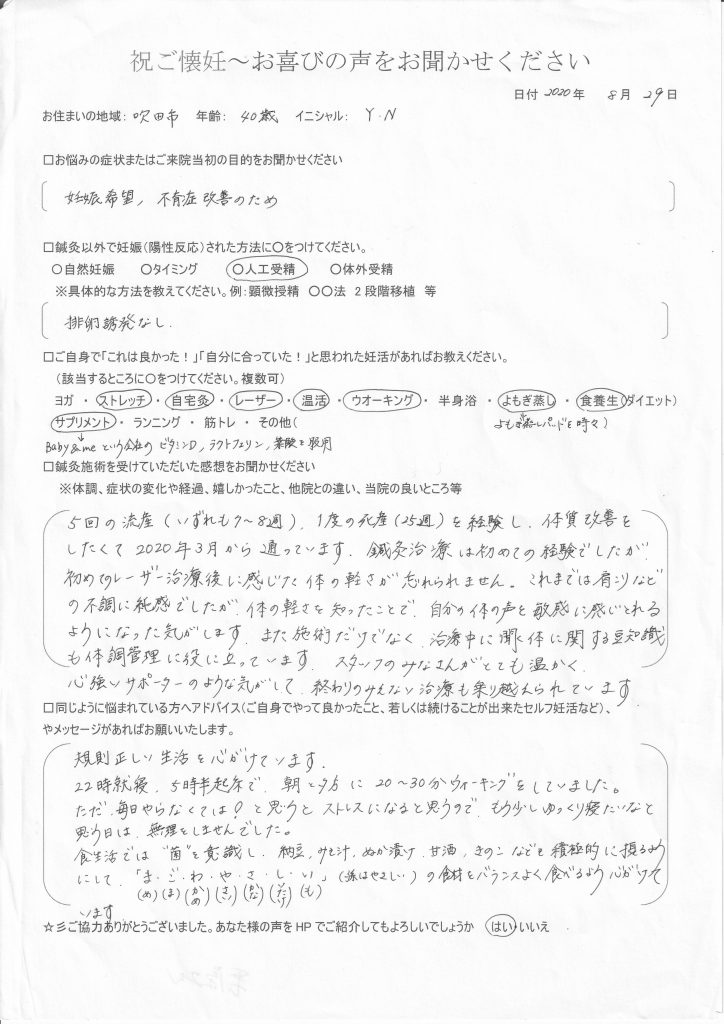 祝ご懐妊～お喜びの声をお聞かせください
日付 2020年 8月 29日
お住まいの地域： 吹田市 年齢： 40歳 イニシャル： Y.N
□お悩みの症状またはご来院当初の目的をお聞かせください
妊娠希望、不育症改善のため
□鍼灸以外で妊娠（陽性反応）された方法に○をつけてください。
○自然妊娠 ○タイミング ○人工受精 ○体外受精
※具体的な方法を教えてください。例：顕微授精 ○○法 2段階移植 等
排卵誘発なし．
□ご自身で「これは良かった！」「自分に合っていた！」と思われた妊活があればお教えください。
（該当するところに○をつけてください。複数可）
ヨガ ・ ストレッチ ・ 自宅灸 ・ レーザー ・ 温活 ・ ウオーキング ・ 半身浴 ・ よもぎ蒸し ・ 食養生（ダイエット）
サプリメント ・ ランニング ・ 筋トレ ・ その他（ よもぎ蒸しパッドを時々）
Baby&meという会社の ビタミンD，ラクトフェリン，葉酸を服用
□鍼灸施術を受けていただいた感想をお聞かせください
※体調、症状の変化や経過、嬉しかったこと、他院との違い、当院の良いところ等
5回の流産（いずれも7～8週），1度の死産（25週）を経験し，体質改善を
したくて2020年3月から通っています．鍼灸治療は初めての経験でしたが
初めてのレーザー治療後に感じた体の軽さが忘れられません。これまでは肩こりなど
の不調に鈍感でしたが，体の軽さを知ったことで，自分の体の声を敏感に感じとれる
ようになった気がします．また施術だけでなく，治療中に聞く体に関する豆知識
も体調管理に役に立っています．スタッフのみなさんがとても温かく，
心強いサポーターのような気がして，終わりのみえない治療も乗り越えられています
□同じように悩まれている方へアドバイス（ご自身でやって良かったこと、若しくは続けることが出来たセルフ妊活など）、
やメッセージがあればお願いいたします。
規則正しい生活を心がけています．
22時就寝，5時半起床で，朝と夕方に20～30分ウォーキングをしていました。
ただ，毎日やらなくては！と思うとストレスになると思うので，もう少しゆっくり寝たいなと
思う日は，無理をしませんでした。
食生活では"菌"を意識し，納豆，みそ汁，ぬか漬け，甘酒，きのこなどを積極的に摂るよう
にして，「ま・ご・わ・や・さ・し・い」（孫はやさしい）の食材をバランスよく食べるよう心がけて
います
☆彡ご協力ありがとうございました。あなた様の声をHPでご紹介してもよろしいでしょうか はい・いいえ